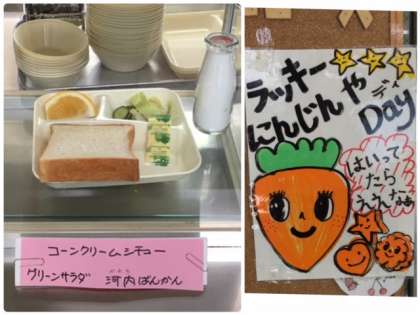 コーンクリームシチュー
グリーンサラダ 河内ばんかん
ラッキー
にんじんや Day
ディ
はいって
たら
ええなぁ